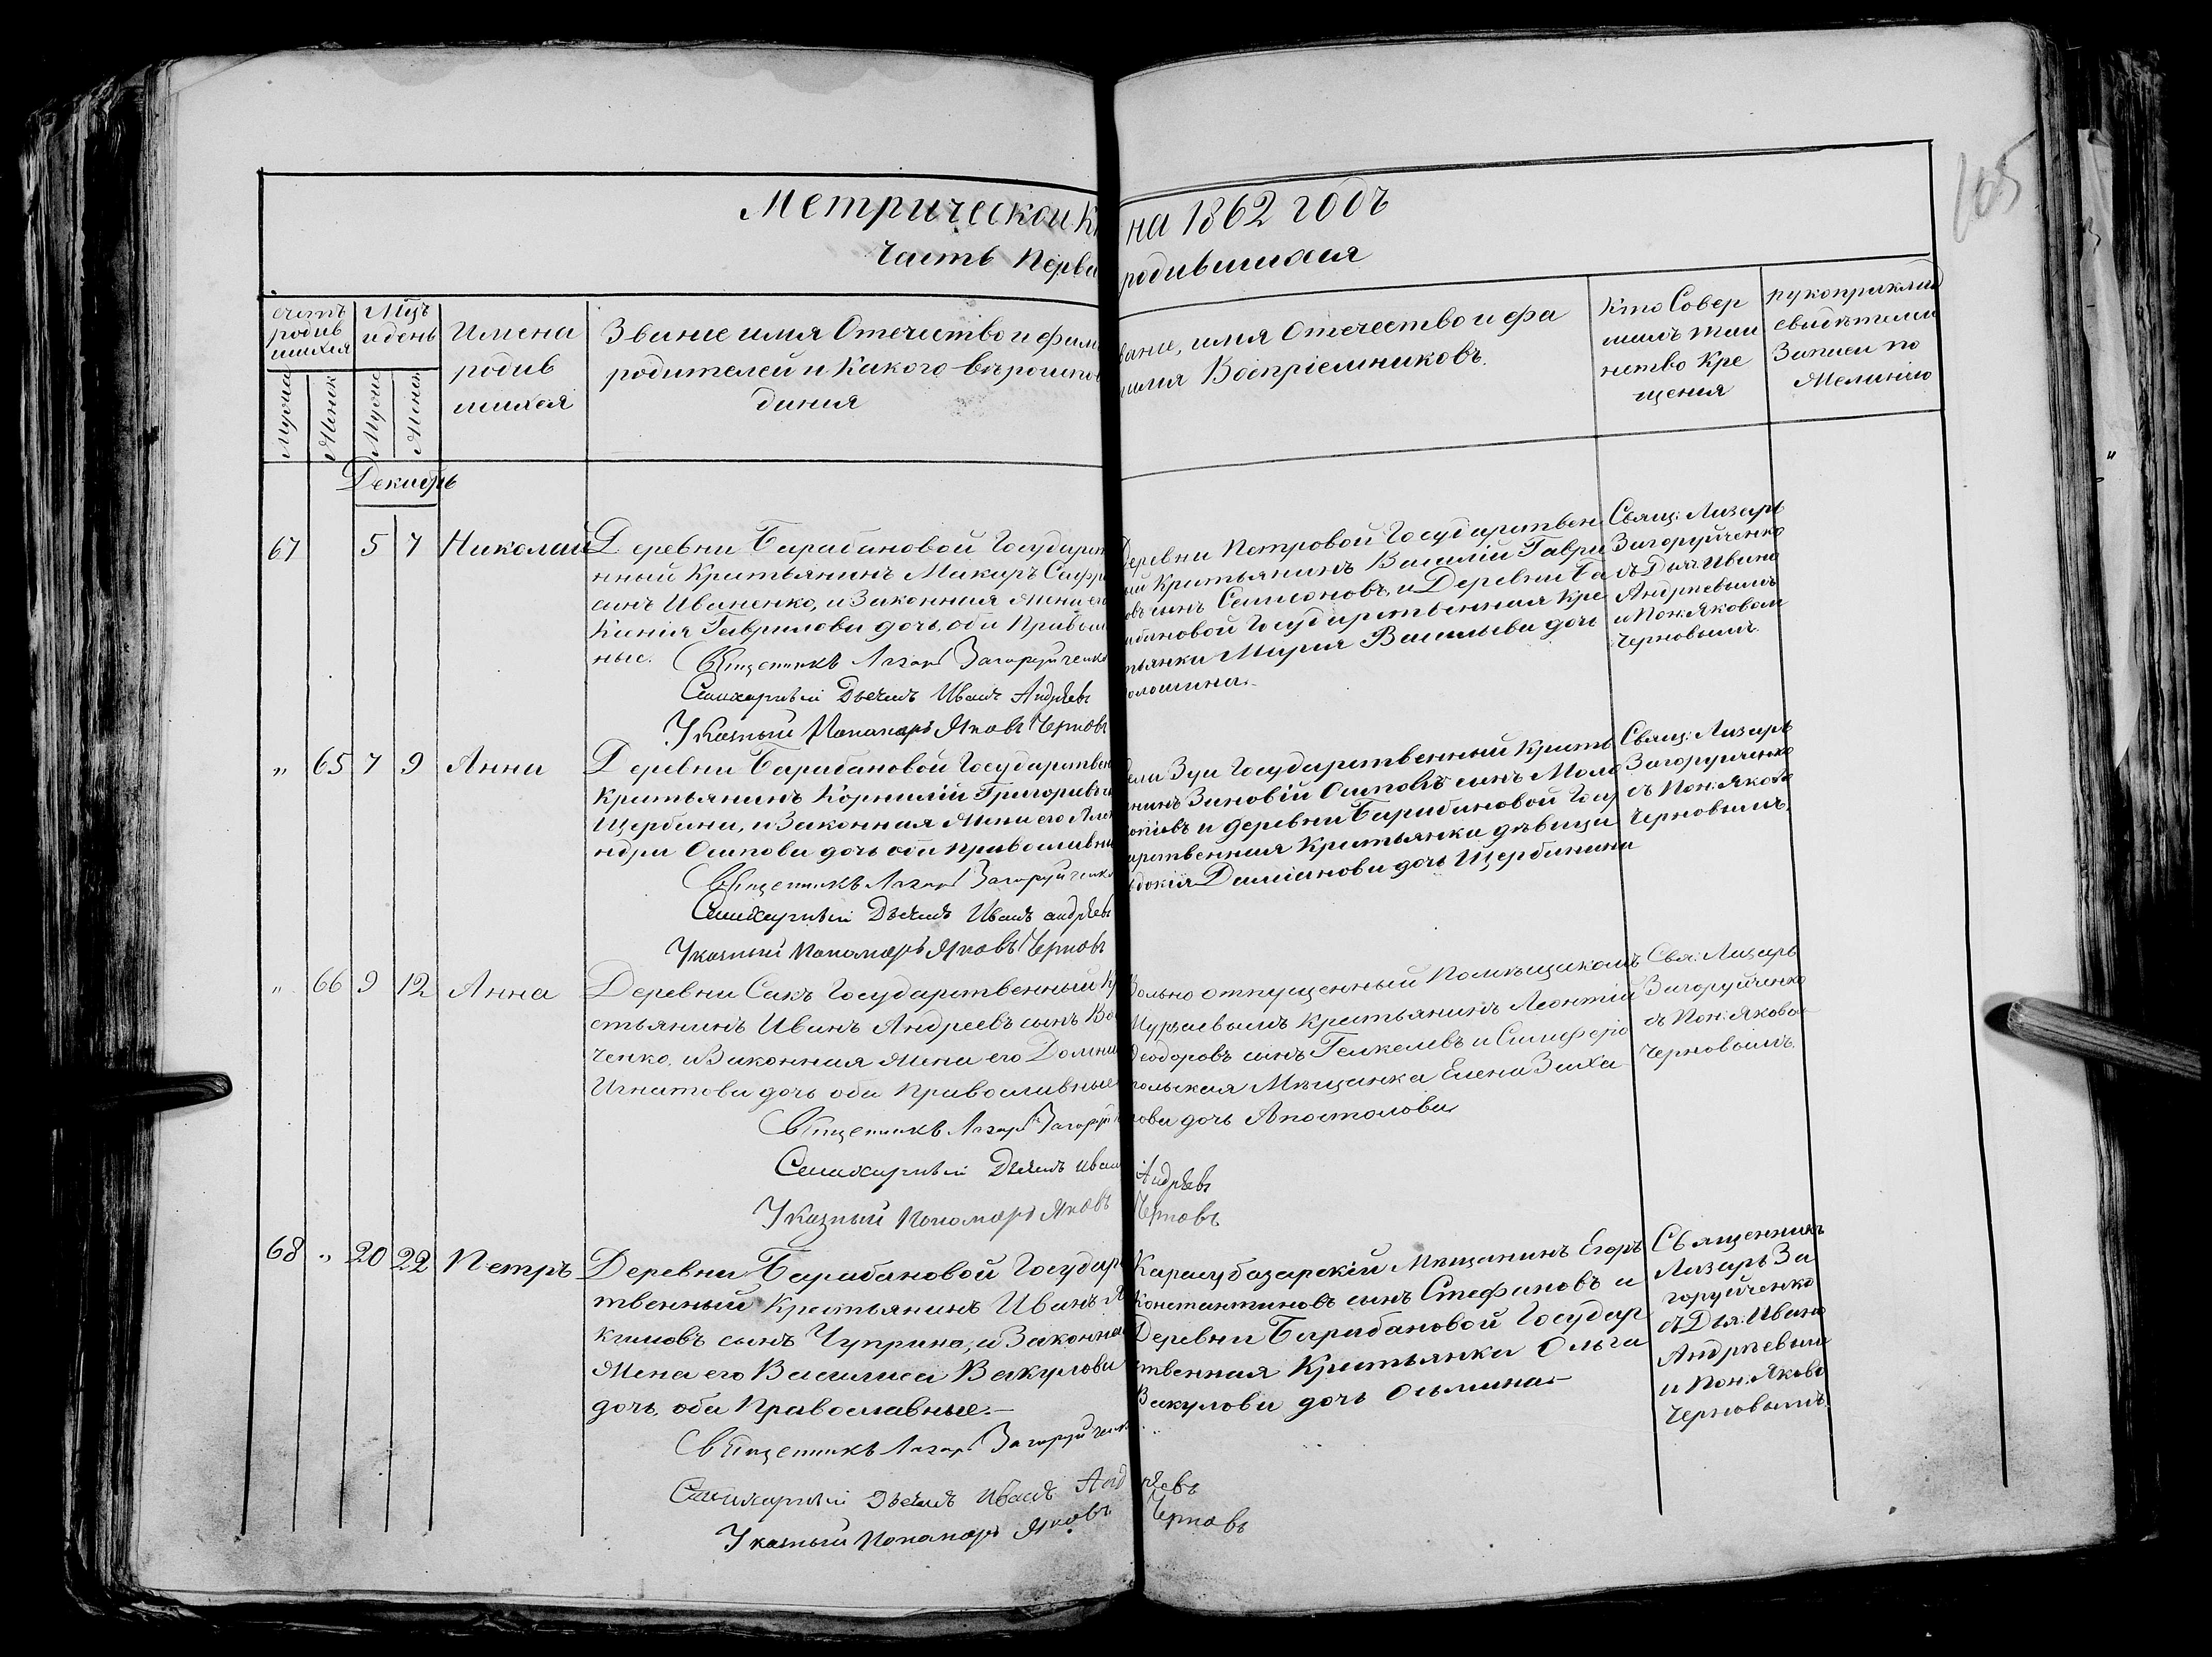 Метрической Кн на 1862 годъ
Часть Перва родившихся
105
счетъ родив шихся
Мцъ и день
Имена родив шихся
Званіе имя Отечество и фами
родителей и Какого вѣроиспов
данія
вание, имя Отечество и фа
милия Воспріемниковъ.
Кто Совер
шилъ таи
нство Кре
щения
рукоприклад
свидѣтелей
Записи по
Желанию
Мужск
Женск
Мужск
Женск
Декабрь
67 5 7 Николай
Деревни Барабановой Государст
нный Крестьянинъ Макаръ Сафро
сынъ Иваненко, и Законная жена его
Ксенія Гаврилова дочь, оба Правосл
ные.
Священникъ Лазарь Загоруйченко
Стихарный Дьячекъ Иванъ Андреевъ
Указный Пономарь Яковъ Черновъ
Деревни Петровой Государствен
ый Крестьянинъ Василій Гаври
овъ сынъ Семионовъ, и Деревни Ба
абановой Государственная Кре
тьянка Мария Васильева дочь
олошина.
Свящ: Лазарь
Загоруйченко
съ Дьяч: Ивано
Андреевымъ
и Пон: Яковом
Черновымъ.
„ 65 7 9 Анна
Деревни Барабановой Государствен
Крестьянинъ Корнилій Григорьевъ с
Щербина, и Законная Жена его Алек
ндра Осипова дочь оба православны
Священникъ Лазарь Загоруйченко
Стихарный Дьячекъ Иванъ андреевъ
Указный Пономарь Яковъ Черновъ
ели Зуи Государственный Кресть
нинъ Зиновій Осиповъ сынъ Моло
окиевъ и деревни Барабановой Госу
арственная Крестьянка дѣвица
вдокія Даміанова дочь Щербинина
Свящ: Лазарь
Загоруйченко
съ Пон: Яково
Черновымъ.
„ 66 9 12 Анна
Деревни Сакъ Государственный Кр
стьянинъ Иванъ Андреевъ сынъ Во
ченко, и Законная жена его Домни
Игнатова дочь оба православные
Священникъ Лазарь Загоруйч
Стихарный Дьячекъ Иван Андреевъ
Указный Пономарь Яковъ Черновъ
Вольно отпущенный Помѣщикомъ
Мурзаевымъ Крестьянинъ Леонтій
Феодоровъ сынъ Гелкелевъ и Симферо
польская Мѣщанка Елена Заха
рова дочь Апостолова
Свя: Лазарь
Загоруйченко
съ Пон: Яково
Черновымъ.
68 „ 20 22 Петръ
Деревни Барабановой Государс
твенный Крестьянинъ Иванъ Я
кимовъ сынъ Чуприна, и Законна
Жена его Василиса Вакулова
дочь, оба Православные.
Священникъ Лазарь Загоруйченк
Стихарный Дьячекъ Иванъ Андреевъ
Указный Пономарь Яковъ Черновъ
Карасубазарскій Мѣщанинъ Егоръ
Константиновъ сынъ Стефановъ и
Деревни Барабановой Государ
твенная Крестьянка Ольга
Вакулова дочь Осьмина
Священникъ
Лазарь За
горуйченко
съ Дья: Ивано
Андреевым
и Пон: Яково
Черновымъ.